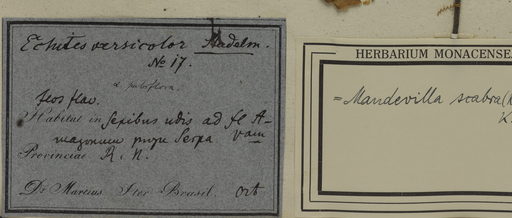 Echites versicolor Stadelm.
No 17.
flos flav.
Habitat in sepibus udis ad fl A-
mazonum prope Serpa
Provinciae R. N.
Dr Martius Iter Brasil. Oct
HERBARIUM MONACENSE
= Mandevilla scabra (
K.